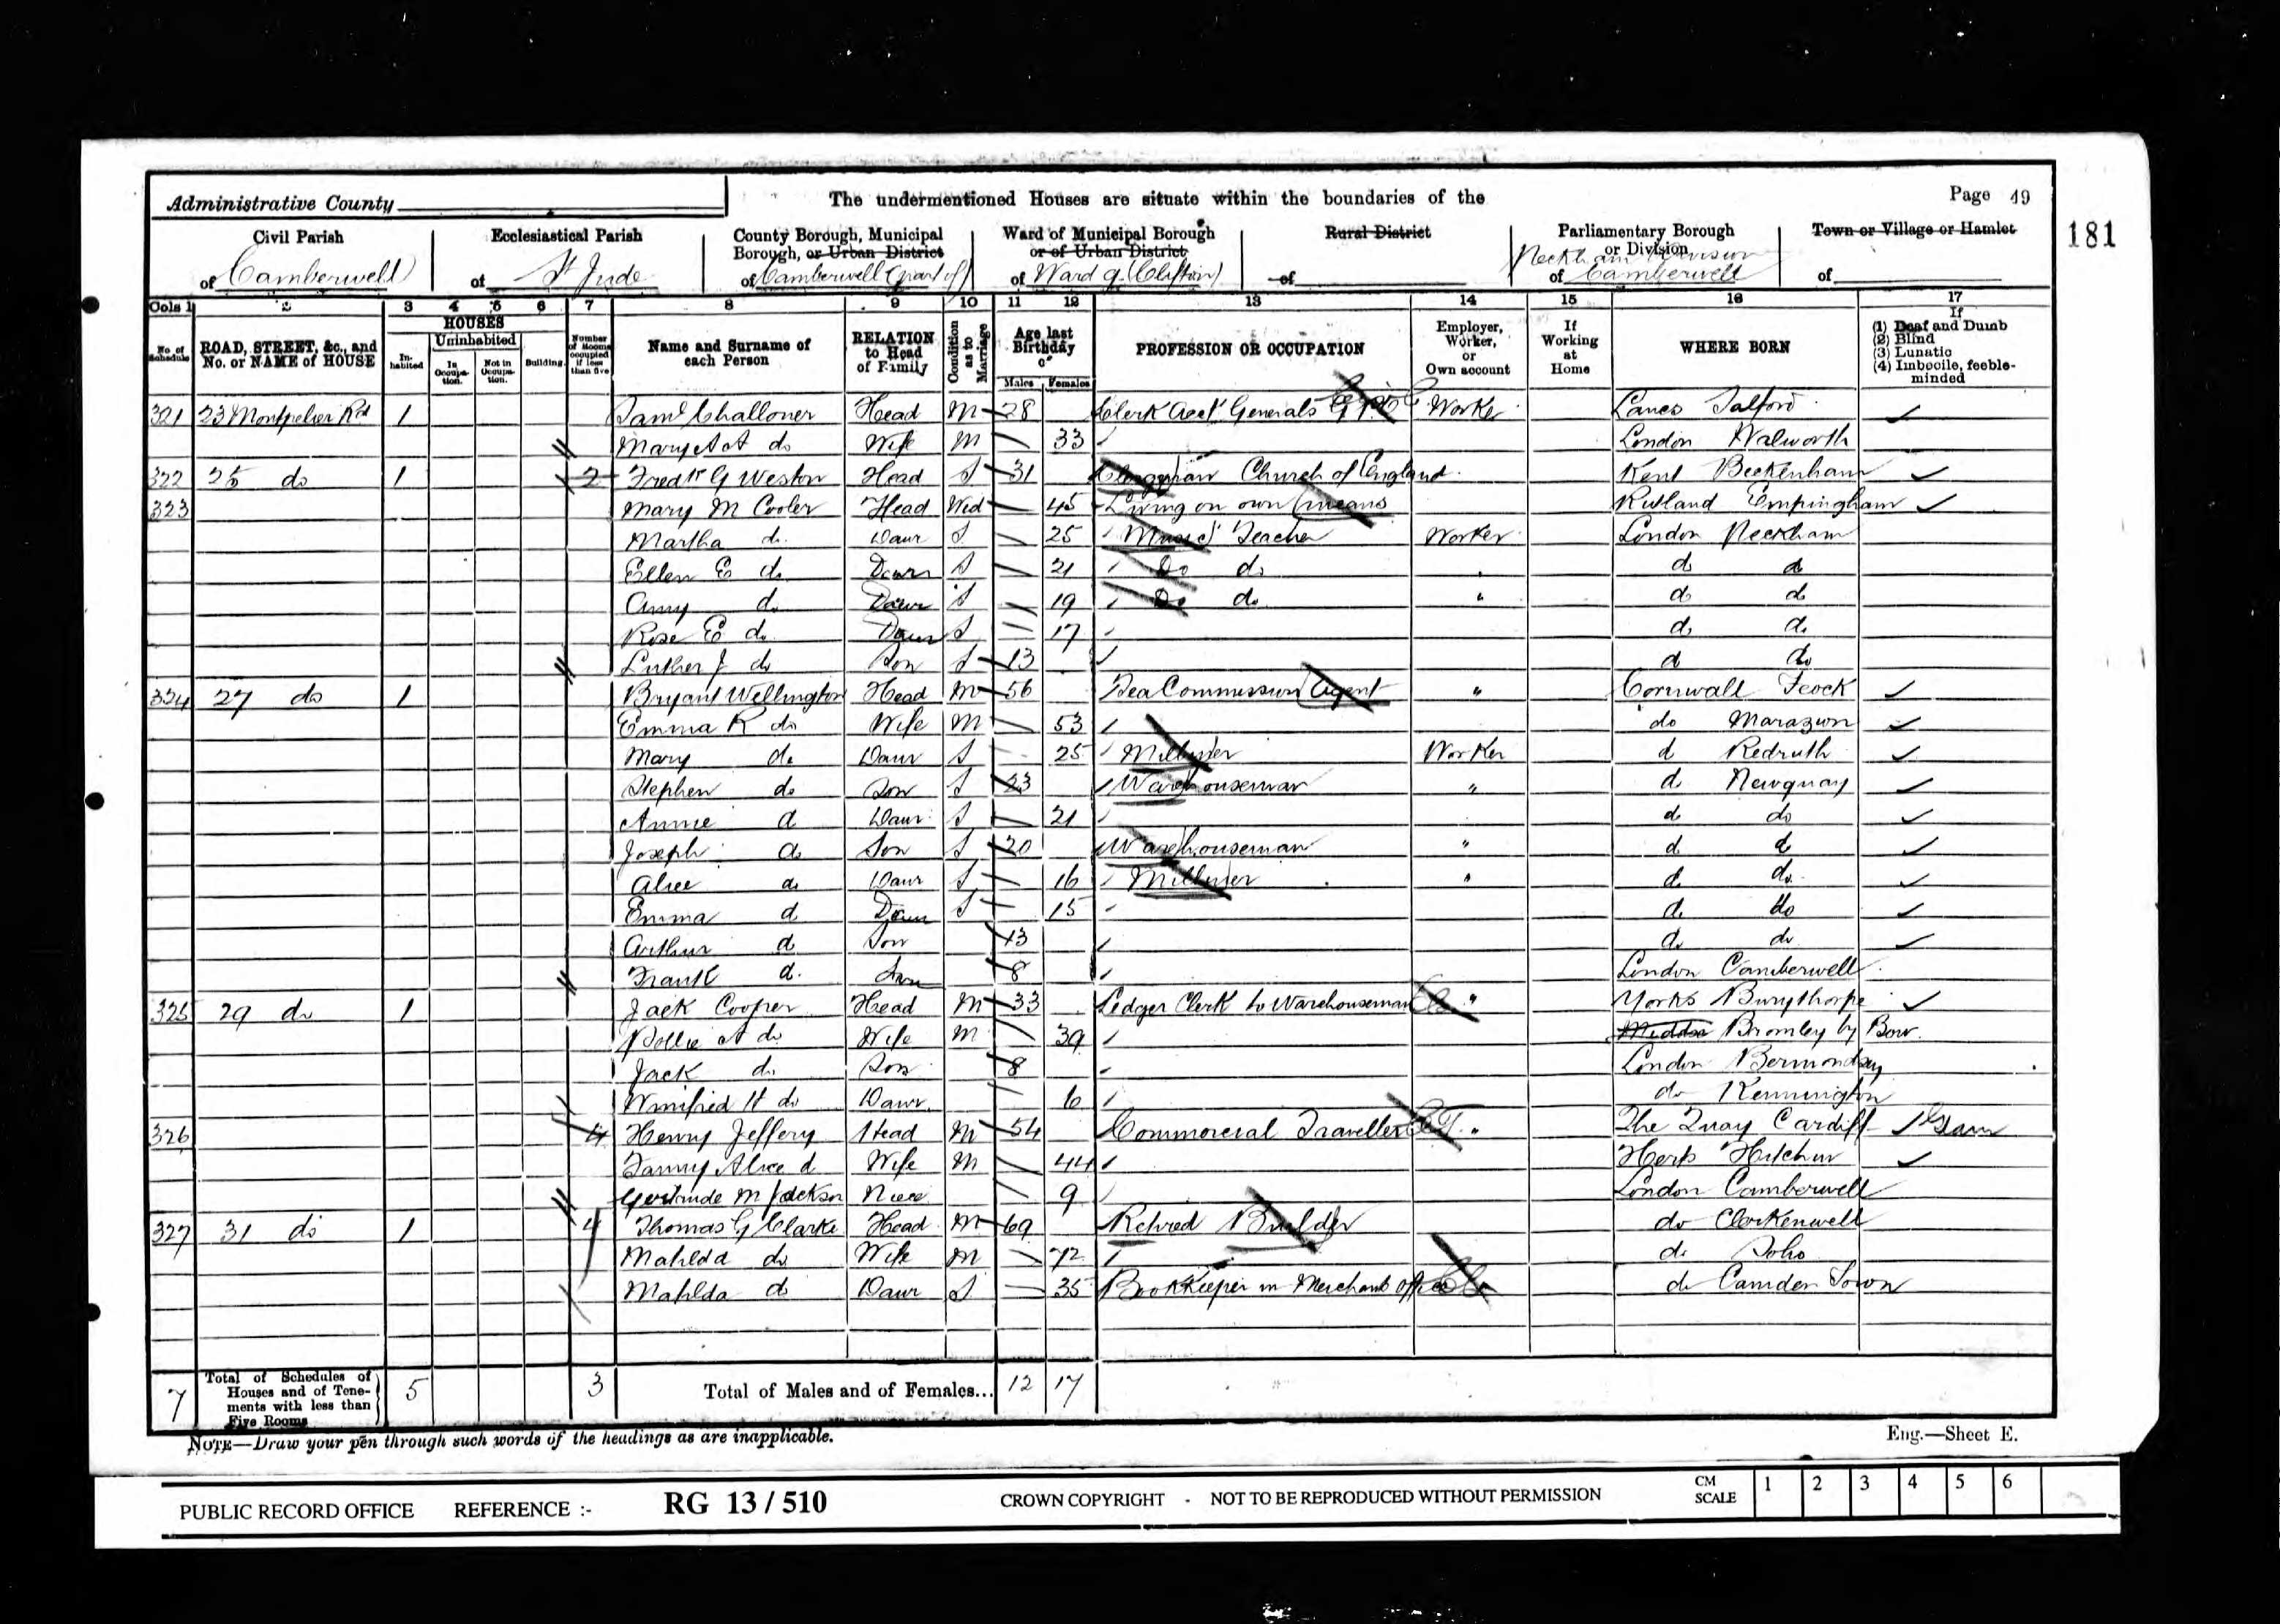 Administrative County
The undermentioned Houses are situate within the boundaries of the
Page 49
181
Civil Parish of Camberwell
Ecclesiastical Parish of St Jude
County Borough, Municipal Borough, or Urban District of Camberwell (part of)
Ward of Municipal Borough or of Urban District of Ward of (Clifton)
Rural District of
Parliamentary Borough or Division of Peckham Division Camberwell
Town or Village or Hamlet of
Cols 1 2 3 4 5 6 7 8 9 10 11 12 13 14 15 16 17
No. of Schedule
ROAD, STREET, &c., and No. or NAME of HOUSE
HOUSES
Inhabited
Uninhabited
In Occupation.
Not in Occupation.
Building.
Number of Rooms occupied if less than five
Name and Surname of each Person
RELATION to Head of Family
Condition as to Marriage
Age last Birthday of
Males Females
PROFESSION OR OCCUPATION
Employer, Worker, or Own account
If Working at Home
WHERE BORN
If (1) Deaf and Dumb (2) Blind (3) Lunatic (4) Imbecile, feeble-minded
321 23 Montpelier Rd 1 Saml Challoner Head M 28 Clerk Acct Generals G.P.O Worker Lancs Salford
Mary A do Wife M 33 London Walworth
322 25 do 1 2 Fredk G Weston Head S 31 Clergyman Church of England Kent Beckenham
323 Mary M Cooler Head Wid 45 Living on own means Rutland Empingham
Martha do Daur S 25 Music Teacher Worker London Peckham
Ellen E do Daur S 21 Do do " do do
Amy do Daur S 19 Do do " do do
Rose E do Daur S 17 do do
Luther J do Son S 13 do do
324 27 do 1 Bryant Wellington Head M 56 Tea Commission Agent " Cornwall Feock
Emma R do Wife M 53 do Marazion
Mary do Daur S 25 Milliner Worker do Redruth
Stephen do Son S 23 Warehouseman " do Newquay
Annie do Daur S 21 do do
Joseph do Son S 20 Warehouseman " do do
Alice do Daur S 16 Milliner " do do
Emma do Daur S 15 do do
Arthur do Son 13 do do
Frank do Son 8 London Camberwell
325 29 do 1 Jack Cooper Head M 33 Ledger Clerk to Warehouseman " Yorks Burythorpe
Pollie A do Wife M 39 Middx Bromley by Bow
Jack do Son 8 London Bermondsey
Winifred H do Daur 6 do Kennington
326 4 Henry Jeffery Head M 54 Commercial Traveller " The Quay Cardiff Glam
Fanny Alice do Wife M 44 Herts Hitchin
Gertrude M Jackson Niece 9 London Camberwell
327 31 do 1 4 Thomas G Clarke Head M 69 Retired Builder do Clerkenwell
Matilda do Wife M 72 do Soho
Matilda do Daur S 35 BookKeeper in Merchants Office do Camden Town
7 Total of Schedules of Houses and of Tenements with less than Five Rooms 5 3 Total of Males and of Females... 12 17
NOTE—Draw your pen through such words of the headings as are inapplicable.
Eng.—Sheet E.
PUBLIC RECORD OFFICE REFERENCE :- RG 13 / 510 CROWN COPYRIGHT - NOT TO BE REPRODUCED WITHOUT PERMISSION CM SCALE 1 2 3 4 5 6